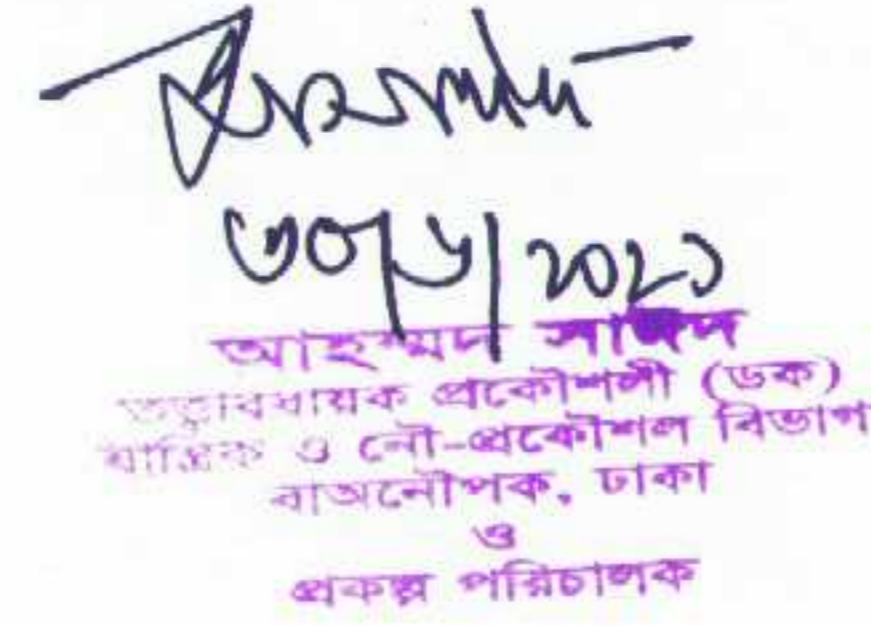 ৩০/৬/২০২১
আহম্মদ
তত্ত্বাবধায়ক প্রকৌশলী (ডক)
যান্ত্রিক ও নৌ-প্রকৌশল বিভাগ
বাঅনৌপক, ঢাকা
ও
প্রকল্প পরিচালক